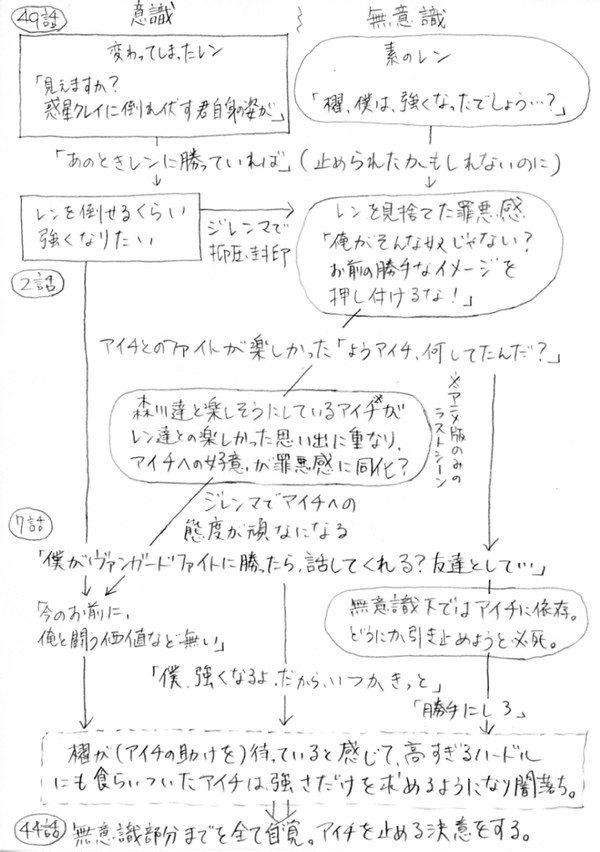 49話
意識
無意識
変わってしまったレン
「見えますか?
惑星クレイに倒れ伏す君自身の姿が」
素のレン
「櫂、僕は、強くなったでしょう…?」
「あのときレンに勝っていれば」(止められたかもしれないのに)
レンを倒せるくらい
強くなりたい
ジレンマで
抑圧、封印
レンを見捨てた罪悪感
「俺がそんな奴じゃない?
お前の勝手なイメージを
押し付けるな!」
2話
アイチとのファイトが楽しかった「ようアイチ、何してたんだ?」
※アニメ版のみの
ラストシーン
森川達と楽しそうにしているアイチが
レン達との楽しかった思い出に重なり、
アイチへの好意、が罪悪感に同化?
ジレンマでアイチへの
態度が頑なになる
7話
「僕がヴァンガードファイトに勝ったら、話してくれる?友達として…」
「今のお前に、
俺と闘う価値など無い」
無意識下ではアイチに依存。
どうにか引き止めようと必死。
「僕、強くなるよ、だから、いつか、きっと」
「勝手にしろ」
櫂が(アイチの助けを)待っていると感じて、高すぎるハードル
にも食らいついたアイチは、強さだけを求めるようになり闇落ち。
44話
無意識部分までを全て自覚。アイチを止める決意をする。